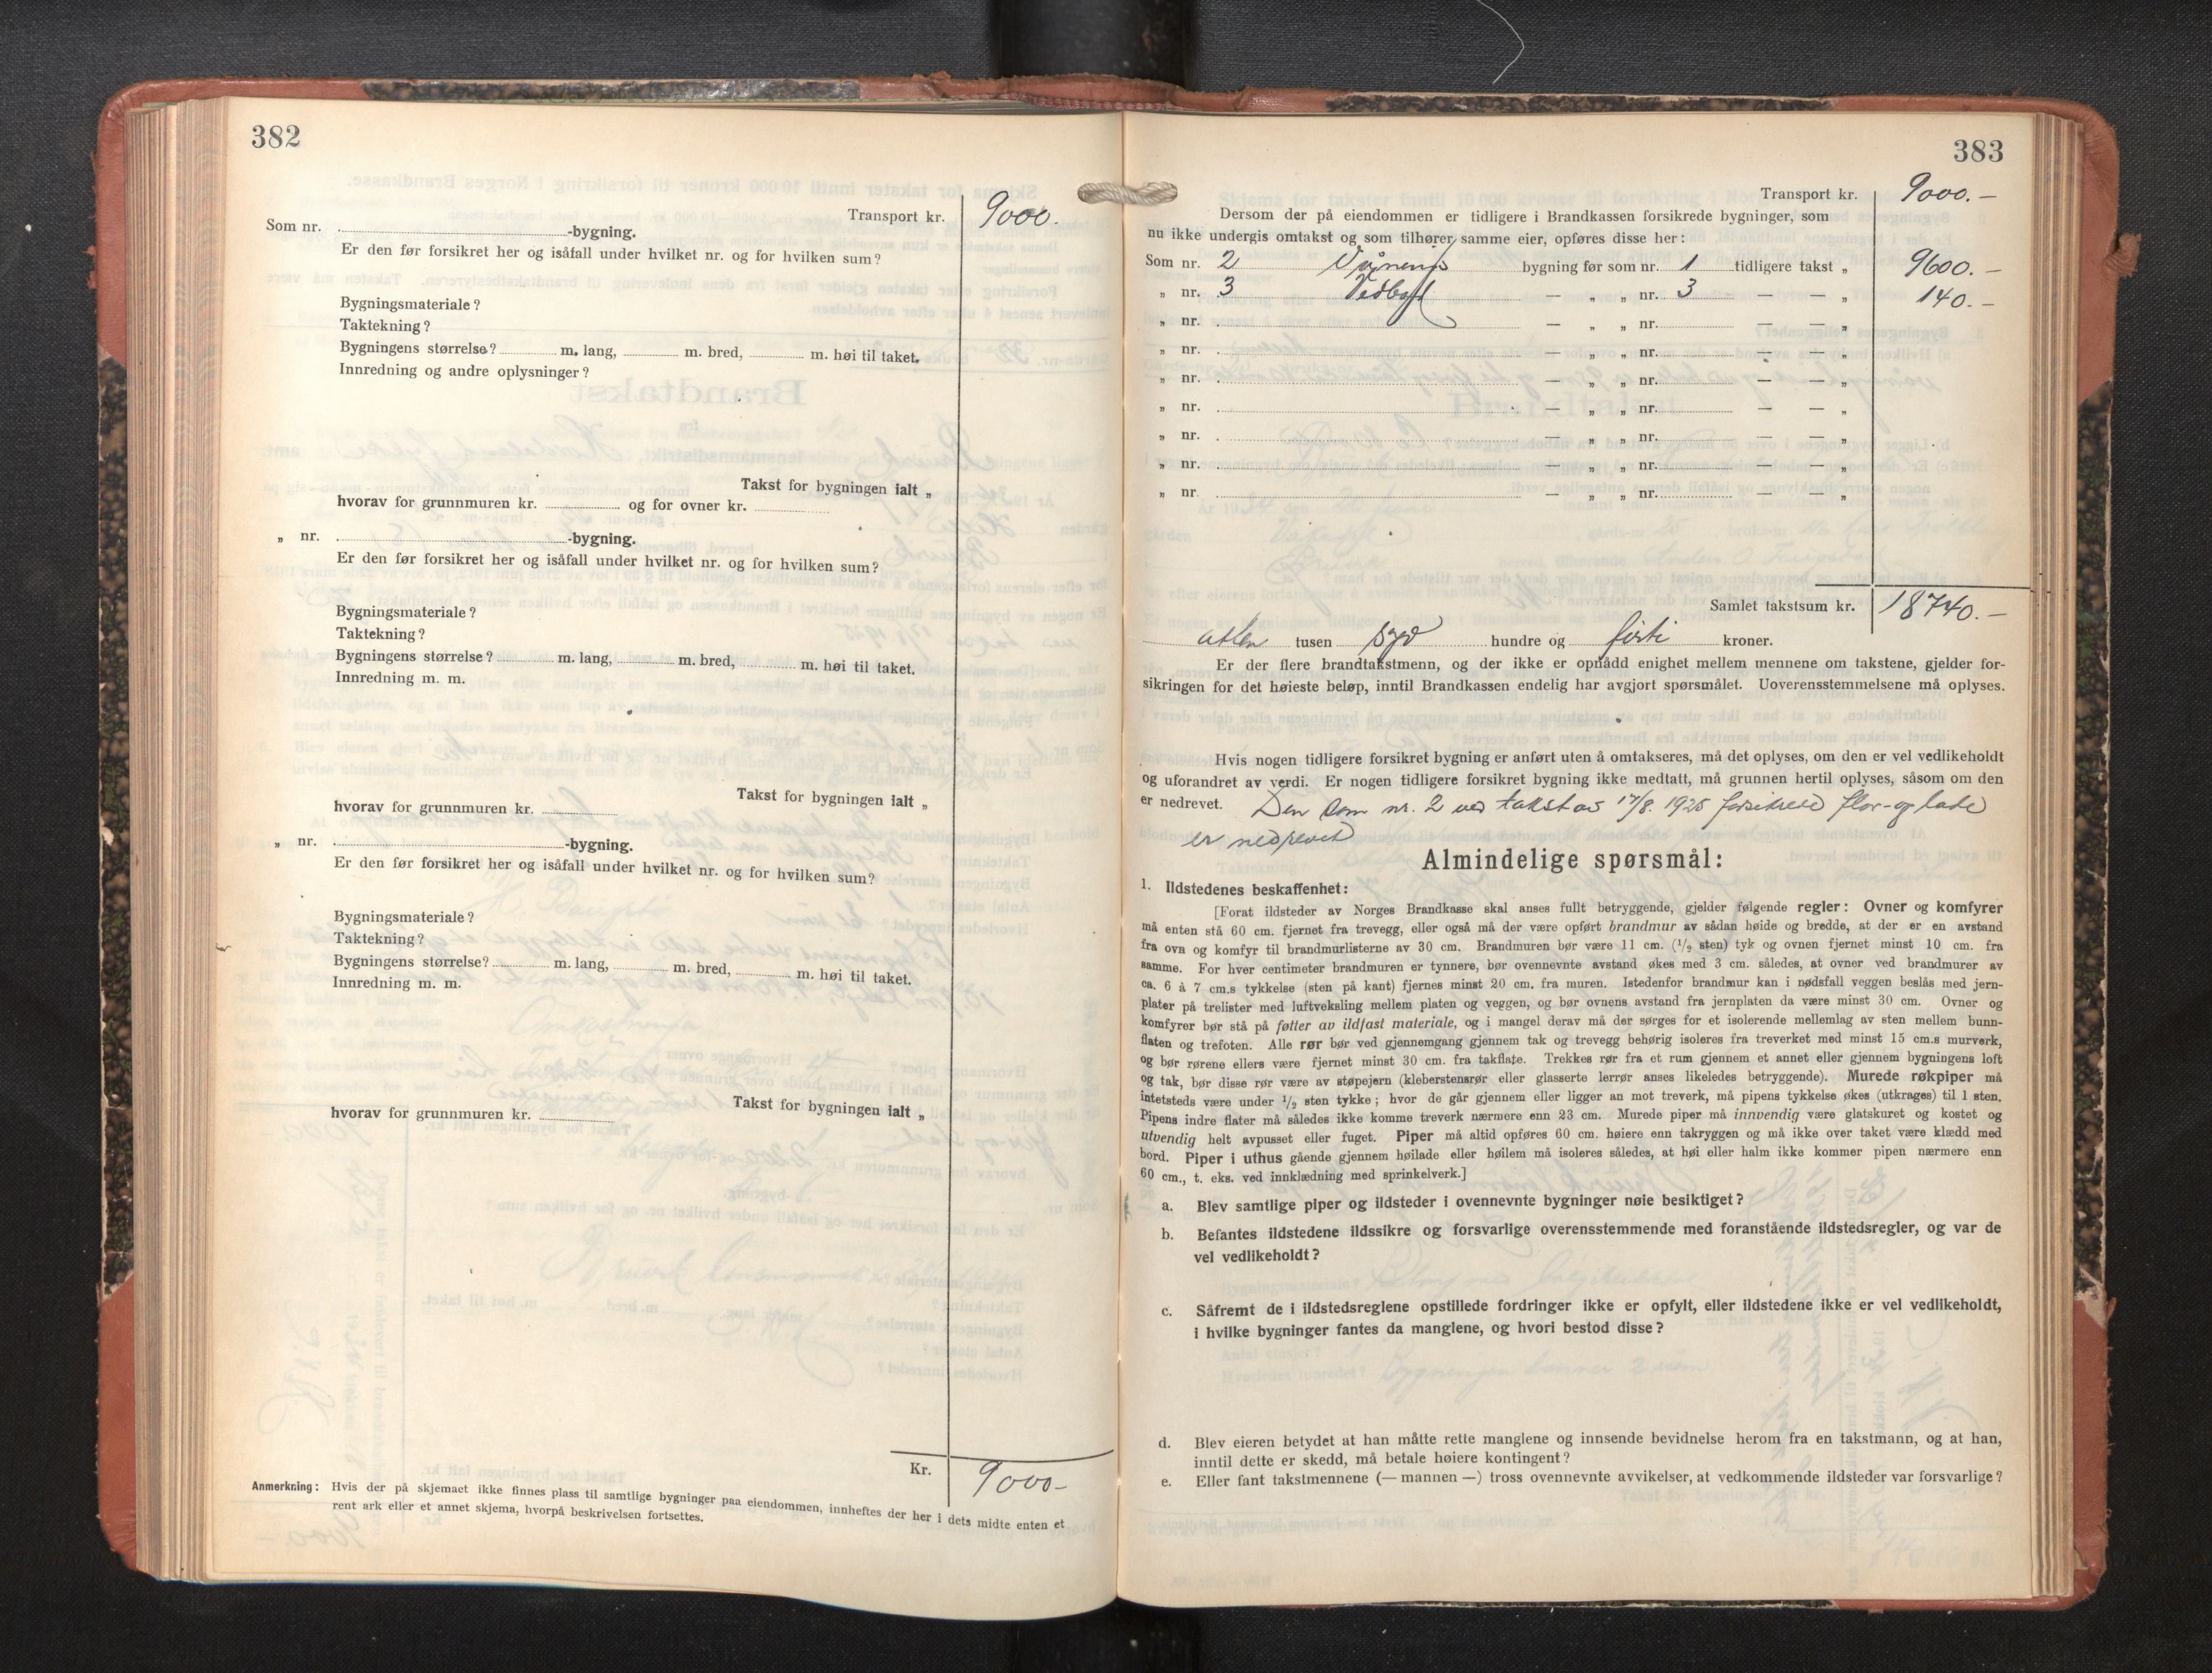 382
Transport kr. 9000.
Som nr. -bygning.
Er den før forsikret her og isåfall under hvilket nr. og for hvilken sum?
Bygningsmateriale?
Taktekning?
Bygningens størrelse? m. lang, m. bred, m. høi til taket.
Innredning og andre oplysninger?
Takst for bygningen ialt „
hvorav for grunnmuren kr. og for ovner kr.
„ nr. -bygning.
Er den før forsikret her og isåfall under hvilket nr. og for hvilken sum?
Bygningsmateriale?
Taktekning?
Bygningens størrelse? m. lang, m. bred, m. høi til taket.
Innredning m. m.
Takst for bygningen ialt „
hvorav for grunnmuren kr.
„ nr. -bygning.
Er den før forsikret her og isåfall under hvilket nr. og for hvilken sum?
Bygningsmateriale?
Taktekning?
Bygningens størrelse? m. lang, m. bred, m. høi til taket.
Innredning m. m.
Takst for bygningen ialt „
hvorav for grunnmuren kr.
Kr. 9000-
Anmerkning: Hvis der på skjemaet ikke finnes plass til samtlige bygninger paa eiendommen, innheftes der her i dets midte enten et
rent ark eller et annet skjema, hvorpå beskrivelsen fortsettes.
383
Transport kr. 9000.-
Dersom der på eiendommen er tidligere i Brandkassen forsikrede bygninger, som
nu ikke undergis omtakst og som tilhører samme eier, opføres disse her:
Som nr. 2 Vånings bygning før som nr. 1 tidligere takst „ 9600.-
„ nr. 3 — „ „ nr. 3 — — „ 140.-
„ nr. — „ „ nr. — — „
„ nr. — „ „ nr. — — „
„ nr. — „ „ nr. — — „
„ nr. — „ „ nr. — — „
„ nr. — „ „ nr. — — „
„ nr. — „ „ nr. — — „
„ nr. — „ „ nr. — — „
Samlet takstsum kr. 18740.-
atten tusen syv hundre og førti kroner.
Er der flere brandtakstmenn, og der ikke er opnådd enighet mellem mennene om takstene, gjelder for-
sikringen for det høieste beløp, inntil Brandkassen endelig har avgjort spørsmålet. Uoverensstemmelsene må oplyses.
Hvis nogen tidligere forsikret bygning er anført uten å omtakseres, må det oplyses, om den er vel vedlikeholdt
og uforandret av verdi. Er nogen tidligere forsikret bygning ikke medtatt, må grunnen hertil oplyses, såsom om den
er nedrevet. Den som nr. 2 ved takst av 17/8. 1925 forsikrede flor- og lade
er nedrevet
Almindelige spørsmål:
1. Ildstedenes beskaffenhet:
[Forat ildsteder av Norges Brandkasse skal anses fullt betryggende, gjelder følgende regler: Ovner og komfyrer
må enten stå 60 cm. fjernet fra trevegg, eller også må der være opført brandmur av sådan høide og bredde, at der er en avstand
fra ovn og komfyr til brandmurlisterne av 30 cm. Brandmuren bør være 11 cm. (1/2 sten) tyk og ovnen fjernet minst 10 cm. fra
samme. For hver centimeter brandmuren er tynnere, bør ovennevnte avstand økes med 3 cm. således, at ovner ved brandmurer av
ca. 6 à 7 cm.s tykkelse (sten på kant) fjernes minst 20 cm. fra muren. Istedenfor brandmur kan i nødsfall veggen beslås med jern-
plater på trelister med luftveksling mellem platen og veggen, og bør ovnens avstand fra jernplaten da være minst 30 cm. Ovner og
komfyrer bør stå på føtter av ildfast materiale, og i mangel derav må der sørges for et isolerende mellemlag av sten mellem bunn-
flaten og trefoten. Alle rør bør ved gjennemgang gjennem tak og trevegg behørig isoleres fra treverket med minst 15 cm.s murverk,
og bør rørene ellers være fjernet minst 30 cm. fra takflate. Trekkes rør fra et rum gjennem et annet eller gjennem bygningens loft
og tak, bør disse rør være av støpejern (kleberstensrør eller glasserte lerrør anses likeledes betryggende). Murede røkpiper må
intetsteds være under 1/2 sten tykke; hvor de går gjennem eller ligger an mot treverk, må pipens tykkelse økes (utkrages) til 1 sten.
Pipens indre flater må således ikke komme treverk nærmere enn 23 cm. Murede piper må innvendig være glatskuret og kostet og
utvendig helt avpusset eller fuget. Piper må altid opføres 60 cm. høiere enn takryggen og må ikke over taket være klædd med
bord. Piper i uthus gående gjennem høilade eller høilem må isoleres således, at høi eller halm ikke kommer pipen nærmere enn
60 cm., t. eks. ved innklædning med sprinkelverk.]
a. Blev samtlige piper og ildsteder i ovennevnte bygninger nøie besiktiget?
b. Befantes ildstedene ildssikre og forsvarlige overensstemmende med foranstående ildstedsregler, og var de
vel vedlikeholdt?
c. Såfremt de i ildstedsreglene opstillede fordringer ikke er opfylt, eller ildstedene ikke er vel vedlikeholdt,
i hvilke bygninger fantes da manglene, og hvori bestod disse?
d. Blev eieren betydet at han måtte rette manglene og innsende bevidnelse herom fra en takstmann, og at han,
inntil dette er skedd, må betale høiere kontingent?
e. Eller fant takstmennene (— mannen —) tross ovennevnte avvikelser, at vedkommende ildsteder var forsvarlige?